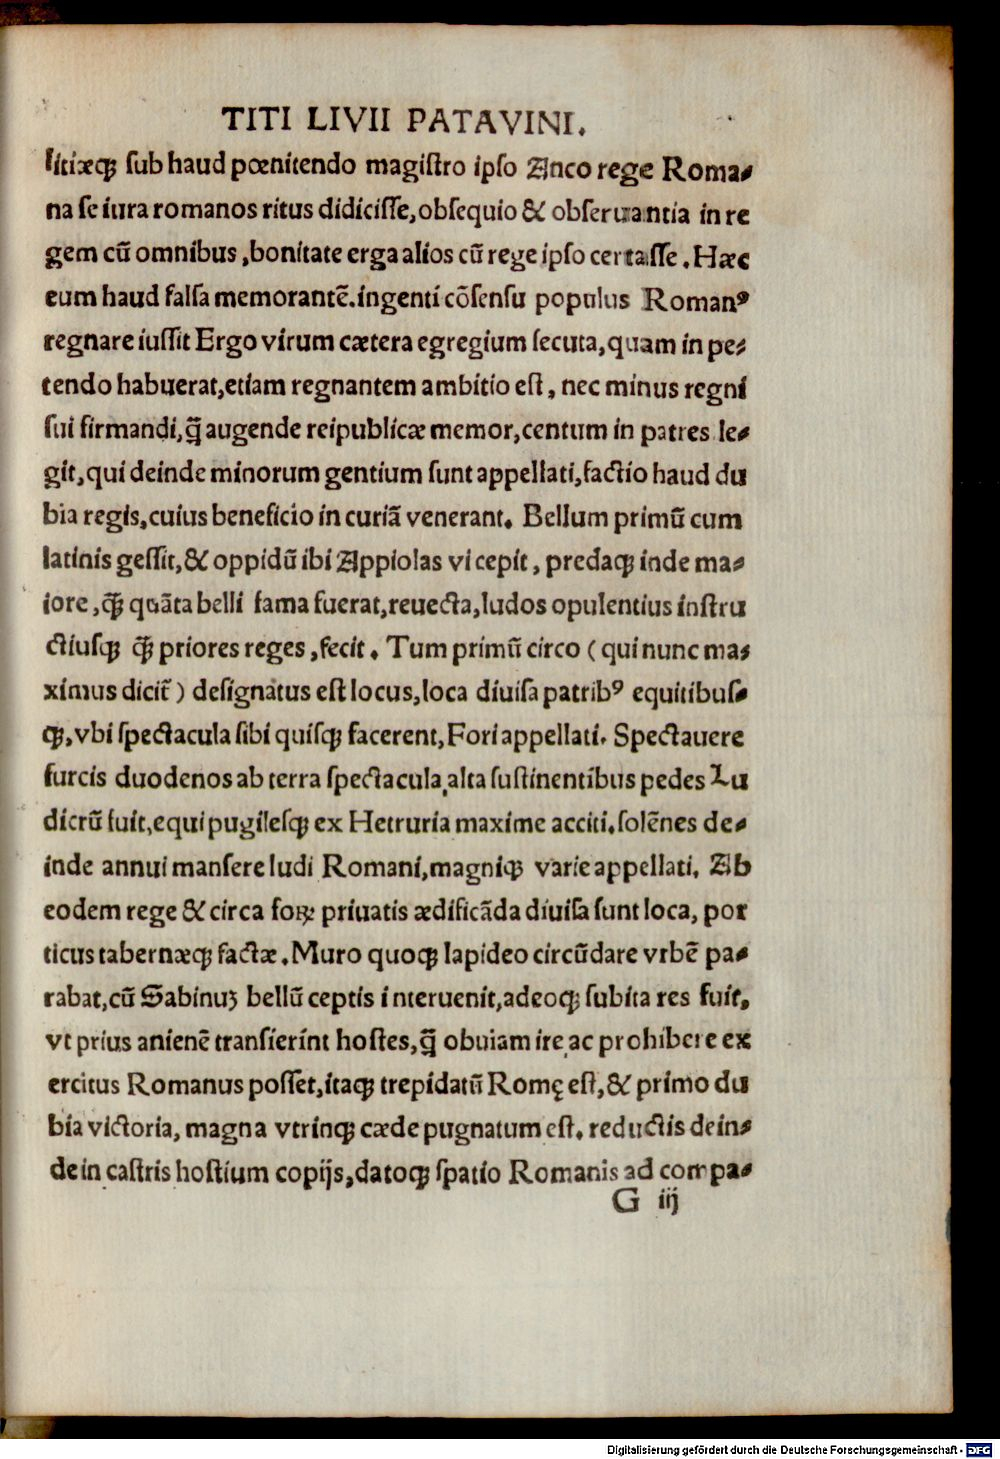 TITI LIVII PATAVINI.
litiæq; ſub haud pœnitendo magiſtro ipſo Anco rege Roma⸗
na ſe iura romanos ritus didiciſſe, obſequio & obſeruantia in re
gem cū omnibus, bonitate erga alios cū rege ipſo certaſſe. Hæc
eum haud falſa memorantē. ingenti cōſenſu populus Romanꝰ
regnare iuſſit Ergo virum cætera egregium ſecuta, quam in pe⸗
tendo habuerat, etiam regnantem ambitio eſt, nec minus regni
ſui firmandi, q̄ augende reipublicæ memor, centum in patres le⸗
git, qui deinde minorum gentium ſunt appellati, factio haud du
bia regis, cuius beneficio in curiā venerant. Bellum primū cum
latinis geſſit, & oppidū ibi Appiolas vi cepit, predaq; inde ma⸗
iore, q̄ꝫ quāta belli fama fuerat, reuecta, ludos opulentius inſtru
ctiuſq; q̄ꝫ priores reges, fecit. Tum primū circo (qui nunc ma⸗
ximus dicit̄) deſignatus eſt locus, loca diuiſa patribꝰ equitibuſ⸗
q;, vbi ſpectacula ſibi quiſq; facerent, Fori appellati. Spectauere
furcis duodenos ab terra ſpectacula, alta ſuſtinentibus pedes Lu
dicrū fuit, equi pugileſq; ex Hetruria maxime acciti. ſolēnes de⸗
inde annui manſere ludi Romani, magniq; varie appellati. Ab
eodem rege & circa foꝝ priuatis ædificāda diuiſa ſunt loca, por
ticus tabernæq; factæ. Muro quoq; lapideo circūdare vrbē pa⸗
rabat, cū Sabinuꝫ bellū ceptis interuenit, adeoq; ſubita res fuit,
vt prius anienē tranſierint hoſtes, q̄ obuiam ire, ac prohibere ex
ercitus Romanus poſſet, itaq; trepidatū Romę eſt, & primo du
bia victoria, magna vtrinq; cæde pugnatum eſt. reductis dein⸗
de in caſtris hoſtium copijs, datoq; ſpatio Romanis ad compa⸗
G iij
Digitalisierung gefördert durch die Deutsche Forschungsgemeinschaft - DFG